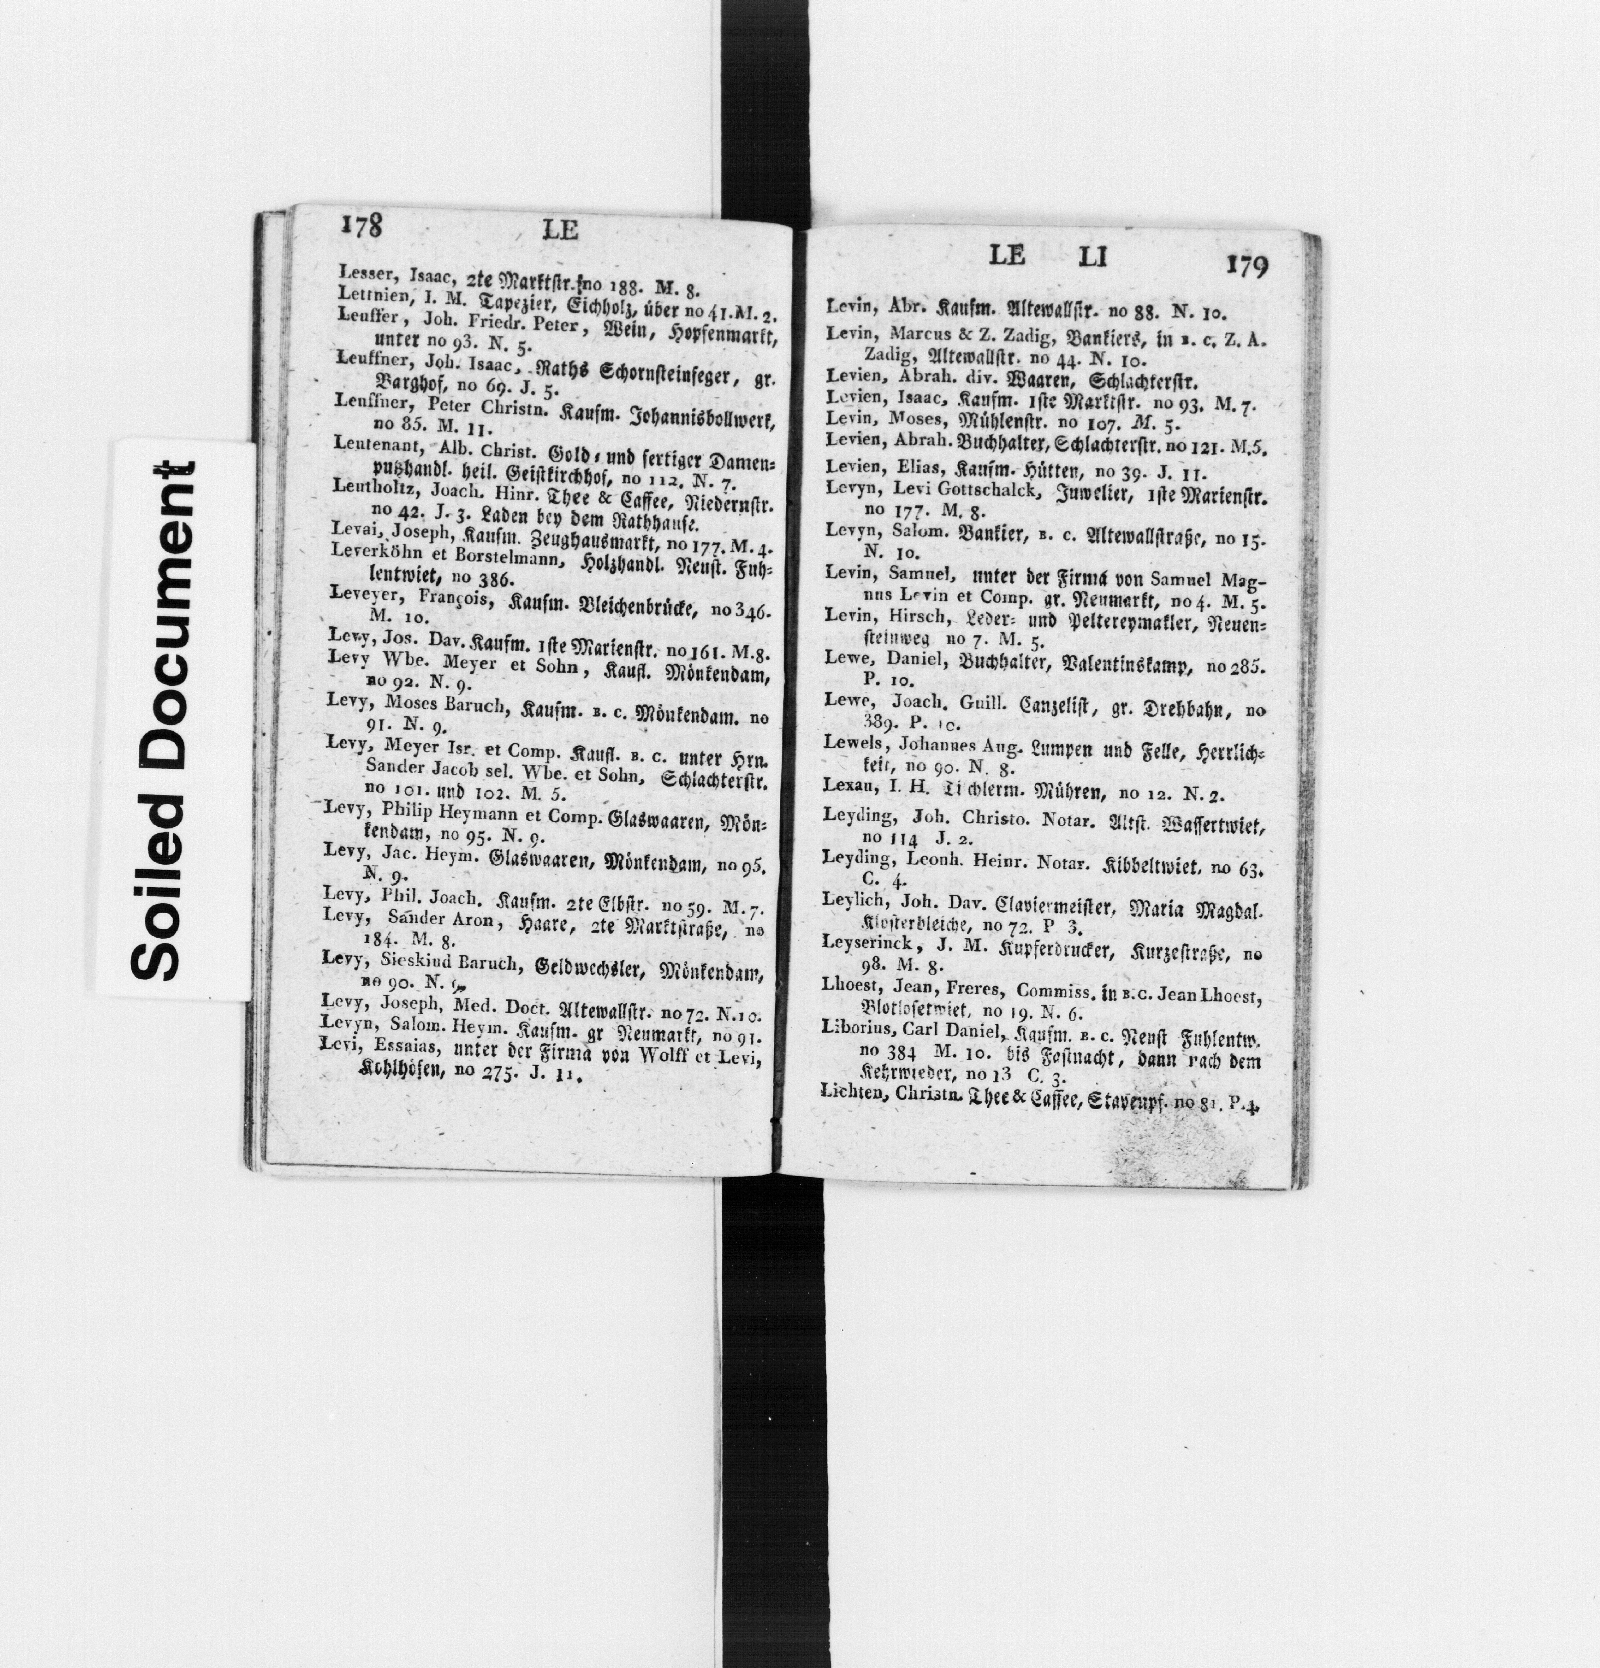 Soiled Document
178 LE
Lesser, Isaac, 2te Marktstr. no 188. M. 8.
Lettnien, I. M. Tapezier, Eichholz, über no 41. M. 2.
Leuffer, Joh. Friedr. Peter, Wein, Hopfenmarkt,
unter no 93. N. 5.
Leuffner, Joh. Isaac, Raths Schornsteinfeger, gr.
Barghof, no 69. J. 5.
Leuffner, Peter Christn. Kaufm. Johannisbollwerk,
no 85. M. 11.
Leutenant, Alb. Christ. Gold- und fertiger Damen-
putzhandl. heil. Geistkirchhof, no 112. N. 7.
Leutholtz, Joach. Hinr. Thee & Caffee, Niedernstr.
no 42. J. 3. Laden bey dem Rathhause.
Levai, Joseph, Kaufm. Zeughausmarkt, no 177. M. 4.
Leverköhn et Borstelmann, Holzhandl. Neust. Fuh-
lentwiet, no 386.
Leveyer, François, Kaufm. Bleichenbrücke, no 346.
M. 10.
Levy, Jos. Dav. Kaufm. 1ste Marienstr. no 161. M. 8.
Levy Wbe. Meyer et Sohn, Kaufl. Mönkendam,
no 92. N. 9.
Levy, Moses Baruch, Kaufm. B. C. Mönkendam. no
91. N. 9.
Levy, Meyer Isr. et Comp. Kaufl. B. C. unter Hrn.
Sander Jacob sel. Wbe. et Sohn, Schlachterstr.
no 101. und 102. M. 5.
Levy, Philip Heymann et Comp. Glaswaaren, Mön-
kendam, no 95. N. 9.
Levy, Jac. Heym. Glaswaaren, Mönkendam, no 95.
N. 9.
Levy, Phil. Joach. Kaufm. 2te Elbstr. no 59. M. 7.
Levy, Sander Aron, Haare, 2te Marktstraße, no
184. M. 8.
Levy, Sieskind Baruch, Geldwechsler, Mönkendam,
no 90. N.
Levy, Joseph, Med. Doct. Altewallstr. no 72. N. 10.
Levyn, Salom. Heym. Kaufm. gr Neumarkt, no 91.
Levi, Essaias, unter der Firma von Wolff et Levi,
Kohlhöfen, no 275. J. 11.
LE LI 179
Levin, Abr. Kaufm. Altewallstr. no 88. N. 10.
Levin, Marcus & Z. Zadig, Bankiers, in B. C. Z. A.
Zadig, Altewallstr. no 44. N. 10.
Levien, Abrah. div. Waaren, Schlachterstr.
Levien, Isaac, Kaufm. 1ste Marktstr. no 93. M. 7.
Levin, Moses, Mühlenstr. no 107. M. 5.
Levien, Abrah. Buchhalter, Schlachterstr. no 121. M. 5.
Levien, Elias, Kaufm. Hütten, no 39. J. 11.
Levyn, Levi Gottschalck, Juwelier, 1ste Marienstr.
no 177. M. 8.
Levyn, Salom. Bankier, B. C. Altewallstraße, no 15.
N. 10.
Levin, Samuel, unter der Firma von Samuel Mag-
nus Levin et Comp. gr. Neumarkt, no 4. M. 5.
Levin, Hirsch, Leder- und Peltereymakler, Neuen-
steinweg no 7. M. 5.
Lewe, Daniel, Buchhalter, Valentinskamp, no 285.
P. 10.
Lewe, Joach. Guill. Canzelist, gr. Drehbahn, no
389. P. 10.
Lewels, Johannes Aug. Lumpen und Felle, Herrlich-
keit, no 90. N. 8.
Lexau, I. H. Tischlerm. Mühren, no 12. N. 2.
Leyding, Joh. Christo. Notar. Altst. Wassertwiet,
no 114 J. 2.
Leyding, Leonh. Heinr. Notar. Kibbeltwiet, no 63.
C. 4.
Leylich, Joh. Dav. Claviermeister, Maria Magdal.
Klosterbleiche, no 72. P 3.
Leyserinck, J. M. Kupferdrucker, Kurzestraße, no
98. M. 8.
Lhoest, Jean, Freres, Commiss. in B. C. Jean Lhoest,
Blotlosetwiet, no 19. N. 6.
Liborius, Carl Daniel, Kaufm. B. C. Neust Fuhlentw.
no 384 M. 10. bis Fastnacht, dann nach dem
Kehrwieder, no 13 C. 3.
Lichten, Christn. Thee & Caffee, Stavenpf. no 81. P. 4.